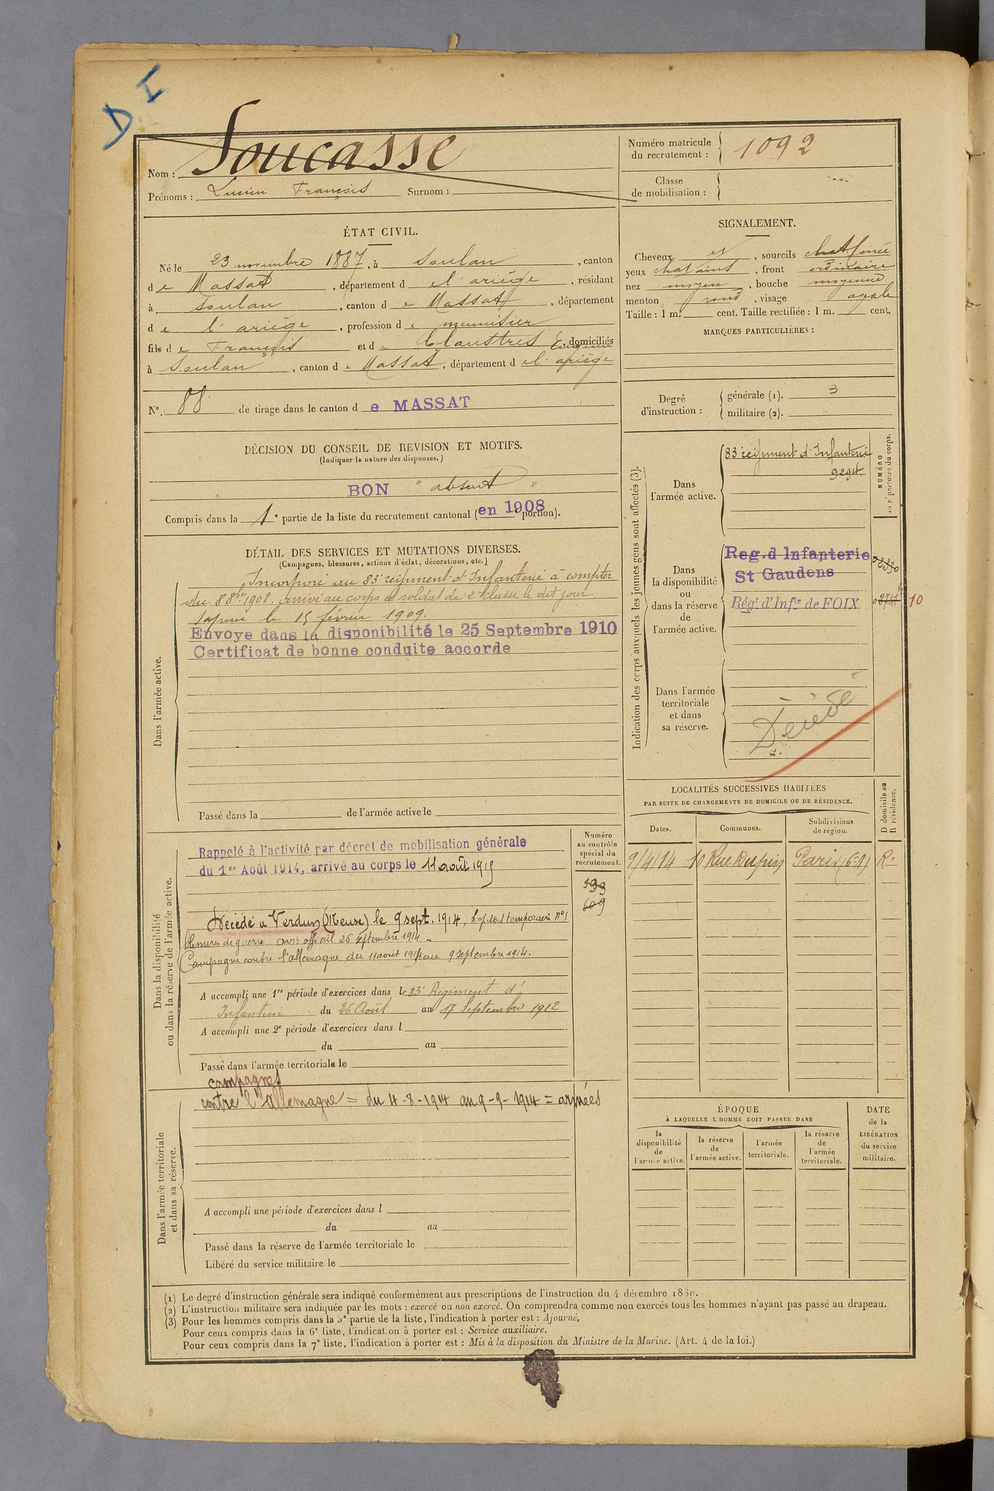 D I
Nom : Soucasse
Prénoms : Lucien François Surnom :
Numéro matricule
du recrutement : 1092
Classe
de mobilisation :
ÉTAT CIVIL.
Né le 23 novembre 1887, à Soulan, canton
de Massat, département de l'ariège, résidant
à Soulan, canton de Massat, département
de l'ariège, profession de meunisier
fils de François et de Claustres, domiciliés
à Soulan, canton de Massat, département de l'ariège
N° 88 de tirage dans le canton de MASSAT
SIGNALEMENT.
Cheveux et, sourcils chat foncé
yeux chatains, front ordinaire
nez moyen, bouche moyenne
menton rond, visage ovale
Taille : 1 m. cent. Taille rectifiée : 1 m. cent.
MARQUES PARTICULIÈRES :
Degré
d'instruction :
générale (1). 3
militaire (2).
DÉCISION DU CONSEIL DE REVISION ET MOTIFS.
(Indiquer la nature des dispenses.)
BON "absent"
Compris dans la 1e partie de la liste du recrutement cantonal (en 1908 portion).
DÉTAIL DES SERVICES ET MUTATIONS DIVERSES.
(Campagnes, blessures, actions d'éclat, décorations, etc.)
Dans l'armée active.
Incorporé au 83e régiment d'Infanterie à compter
du 8 8bre 1908. arrivé au corps et soldat de 2e classe le dit jour
le 15 février 1909.
Envoye dans la disponibilité le 25 Septembre 1910
Certificat de bonne conduite accorde
Passé dans la de l'armée active le
Indication des corps auxquels les jeunes gens sont affectés (3).
NUMÉRO
au répertoire du corps.
Dans
l'armée active.
83 régiment d'Infanterie
Dans
la disponibilité
ou
dans la réserve
de
l'armée active.
Reg. d Infanterie
St Gaudens
Régt d'Infie de FOIX
10
Dans l'armée
territoriale
et dans
sa réserve.
Décédé
LOCALITÉS SUCCESSIVES HABITÉES
PAR SUITE DE CHANGEMENTS DE DOMICILE OU DE RÉSIDENCE.
Dates. Communes. Subdivisions
de région.
D domicile ou
R résidence.
9/4/14 10 Rue Dupin Paris (6e) R.
Dans la disponibilité
ou dans la réserve de l'armée active.
Numéro
au contrôle
spécial du
recrutement.
193
609
Rappelé à l'activité par décret de mobilisation générale
du 1er Août 1914, arrivé au corps le 11 août 1914
Décédé à Verdun (Meuse) le 9 sept. 1914, hopital temporaire N°1
blessures de guerre avis officiel 26 septembre 1914
Campagne contre l'allemagne du 11 août 1914 au 9 septembre 1914.
A accompli une 1re période d'exercices dans le 83e Régiment d'
Infanterie du 26 Août au 17 Septembre 1912
A accompli une 2e période d'exercices dans l
du au
Passé dans l'armée territoriale le
Dans l'armée territoriale
et dans sa réserve.
campagnes
contre l'Allemagne = du 11-8-1914 au 9-9-1914 = armées
A accompli une période d'exercices dans l
du au
Passé dans la réserve de l'armée territoriale le
Libéré du service militaire le
ÉPOQUE
À LAQUELLE L'HOMME DOIT PASSER DANS
DATE
de la
LIBÉRATION
du service
militaire.
la
disponibilité
de
l'armée active.
la réserve
de
l'armée active.
l'armée
territoriale.
la réserve
de
l'armée
territoriale.
(1) Le degré d'instruction générale sera indiqué conformément aux prescriptions de l'instruction du 4 décembre 1889.
(2) L'instruction militaire sera indiquée par les mots : exercé ou non exercé. On comprendra comme non exercés tous les hommes n'ayant pas passé au drapeau.
(3) Pour les hommes compris dans la 5e partie de la liste, l'indication à porter est : Ajourné,
Pour ceux compris dans la 6e liste, l'indication à porter est : Service auxiliaire.
Pour ceux compris dans la 7e liste, l'indication à porter est : Mis à la disposition du Ministre de la Marine. (Art. 4 de la loi.)